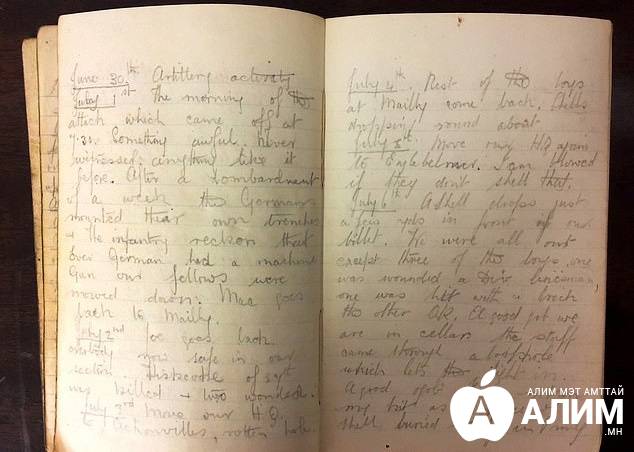 June 30th Artillery activity
July 1st The morning of the
attack which came off at
7:30. Something awful. Never
witnessed anything like it
before. After a bombardment
of a week the Germans
manned their own trenches
& the infantry reckon that
every German had a machine
Gun our fellows were
mowed down. Mac goes
back to Mailly.
July 2nd Joe goes back.
everybody now safe in our
section. of 29th
was killed & two wounded.
July 3rd Move our H.Q.
to rotten hole.
July 4th. Rest of the boys
at Mailly come back. Shells
dropping round about
July 5th. Move our H.Q. again
to Englebelmer. I am blowed
if they don't shell that.
July 6th A shell drops just
a few yds in front of our
billet. We were all out
except three of the boys, one
was wounded a Div. linesman,
one was hit with a brick
the other O.K. A good job we
are in cellars the stuff
came through a loophole
which lets the light in.
A good job
my kit as
shell buried in my
АЛИМ МЭТ АМТТАЙ
АЛИМ
.МН